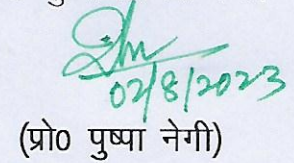 02/8/2023
(प्रो0 पुष्पा नेगी)